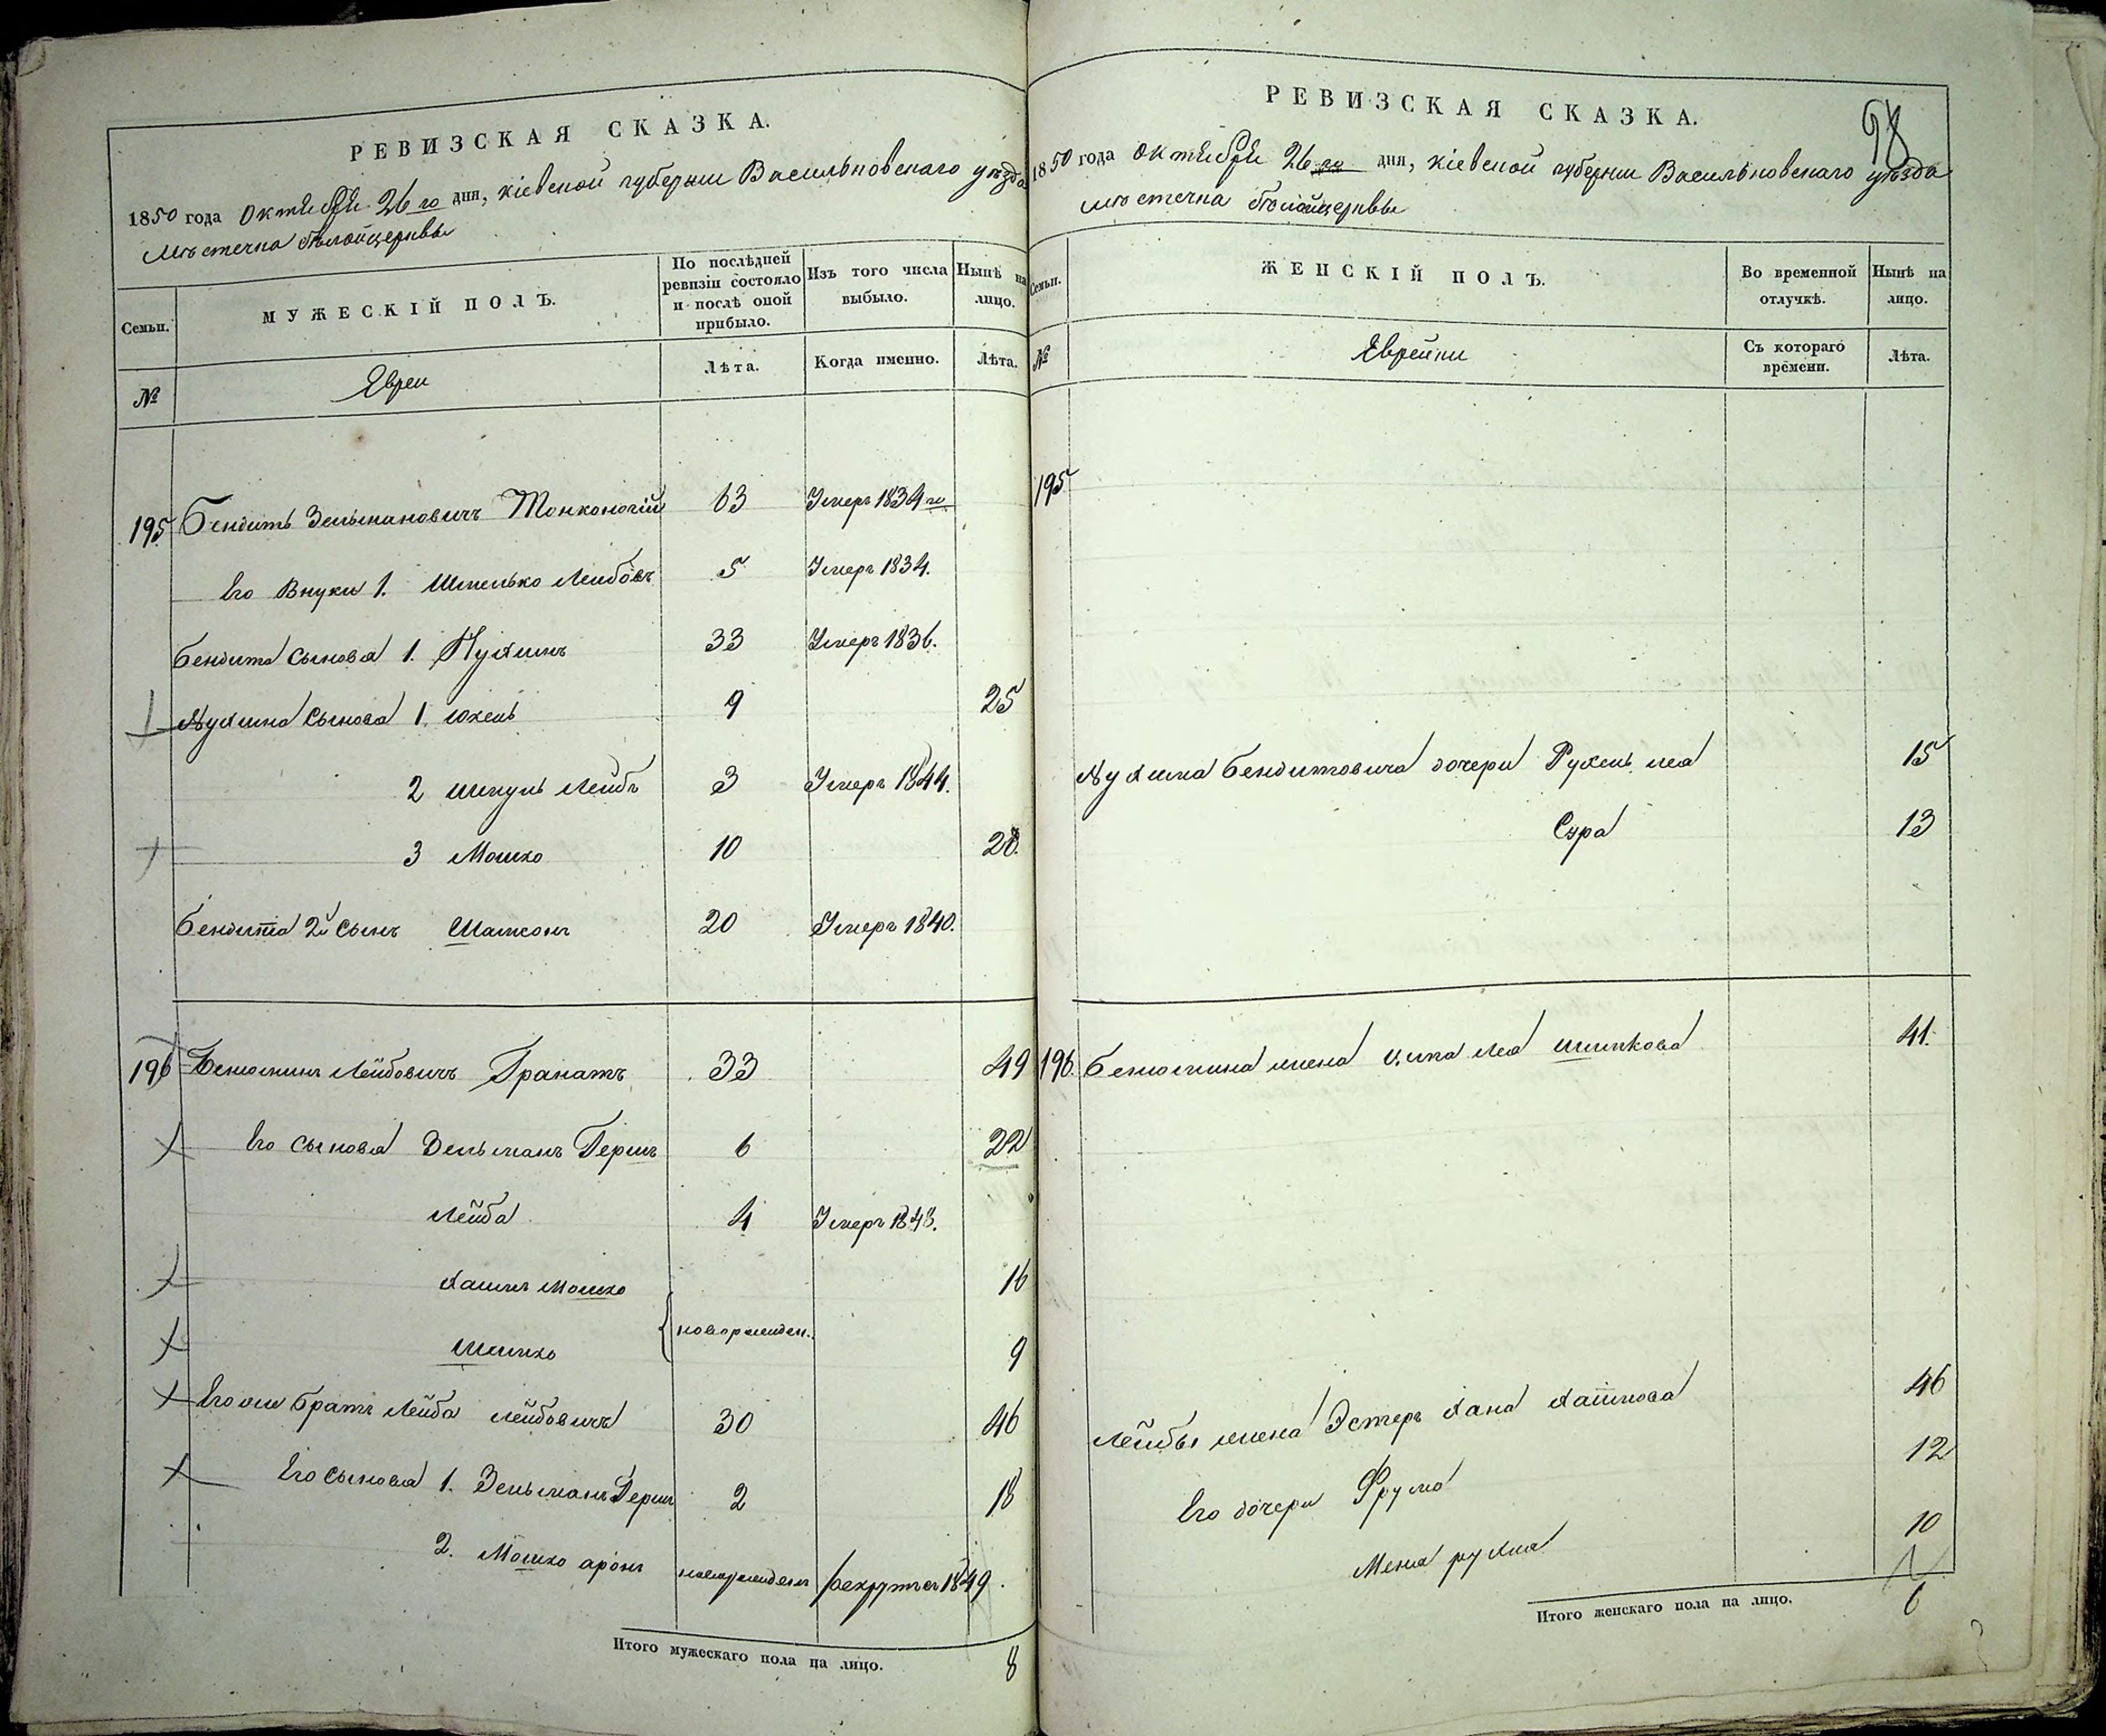 РЕВИЗСКАЯ СКАЗКА.
1850 года Октября 26го дня, Кіевской губерніи Васильковскаго уѣзда
мѣстечка Бѣлойцеркви
Семьи.
МУЖЕСКІЙ ПОЛЪ.
По послѣдней ревизіи состояло и послѣ оной прибыло.
Изъ того числа выбыло.
Нынѣ на лицо.
№
Евреи
Лѣта.
Когда именно.
Лѣта.
195 Бендитъ Зельмановичъ Тонконогій 63 Умеръ 1834го
Его внуки 1. Шмелько Лейбовъ 5 Умеръ 1834.
Бендита сыновья 1. Нухимъ 33 Умеръ 1836.
Нухима сыновья 1. Юхель 9 25
2 Шмуль Лейбъ 3 Умеръ 1844.
3 Мошко 10 26.
Бендита 2й сынъ Шамсонъ 20 Умеръ 1840.
196 Беніоминъ Лейбовичъ Гранатъ 33 49
Его сыновья Зельманъ Гершъ 6 22
Лейба 4 Умеръ 1848.
Хаимъ Мошко 16
новорожден.
Шимко 9
Его же братъ Лейба Лейбовичъ 30 46
Его сыновья 1. Зельманъ Гершъ 2 18
2. Мошко Аронъ новорожденъ рекрутъ съ 1849.
Итого мужескаго пола на лицо. 8
РЕВИЗСКАЯ СКАЗКА.
98
1850 года Октября 26го дня, Кіевской губерніи Васильковскаго уѣзда
мѣстечка Бѣлойцеркви
Семьи.
ЖЕНСКІЙ ПОЛЪ.
Во временной отлучкѣ.
Нынѣ на лицо.
№
Еврейки
Съ котораго времени.
Лѣта.
195
Нухима Бендитовича дочери Рухель Леа 15
Сура 13
196. Беніомина жена Ципа Леа Шимкова 41.
Лейбы жена Эстеръ Хана Хаимова 46
Его дочери Фрума 12
Меня Рухля 10
Итого женскаго пола на лицо. 6